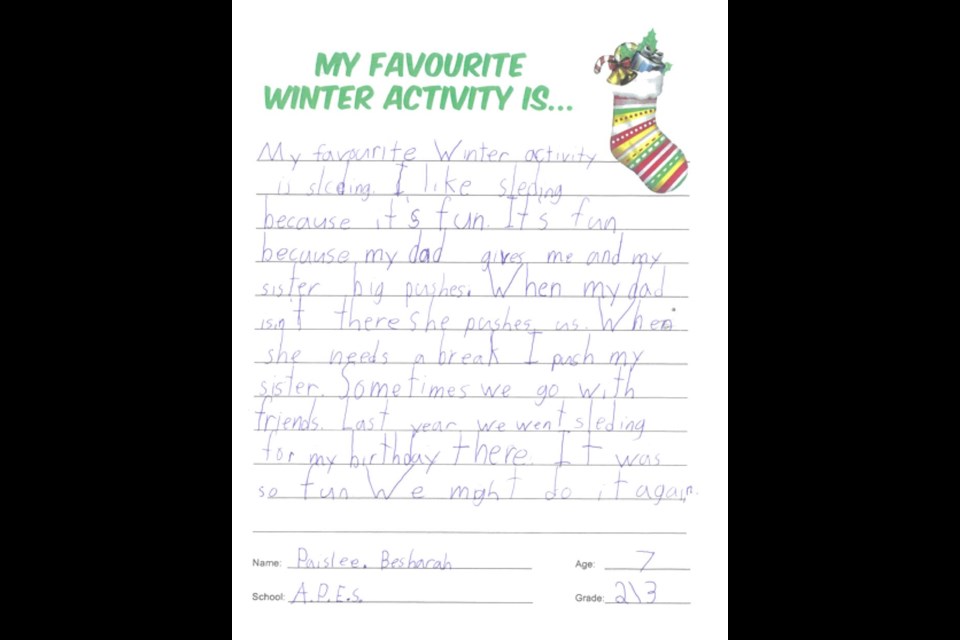 MY FAVOURITE
WINTER ACTIVITY IS...
My favourite Winter activity
is sleding. I like sleding
because it's fun. It's fun
because my dad gives me and my
sister big pushes. When my dad
isn't there she pushes us. When
she needs a break I push my
sister. Sometimes we go with
friends. Last year we went sleding
for my birthday there. It was
so fun We might do it again.
Name: Paislee. Besharah Age: 7
School: A.P.E.S. Grade: 2\3